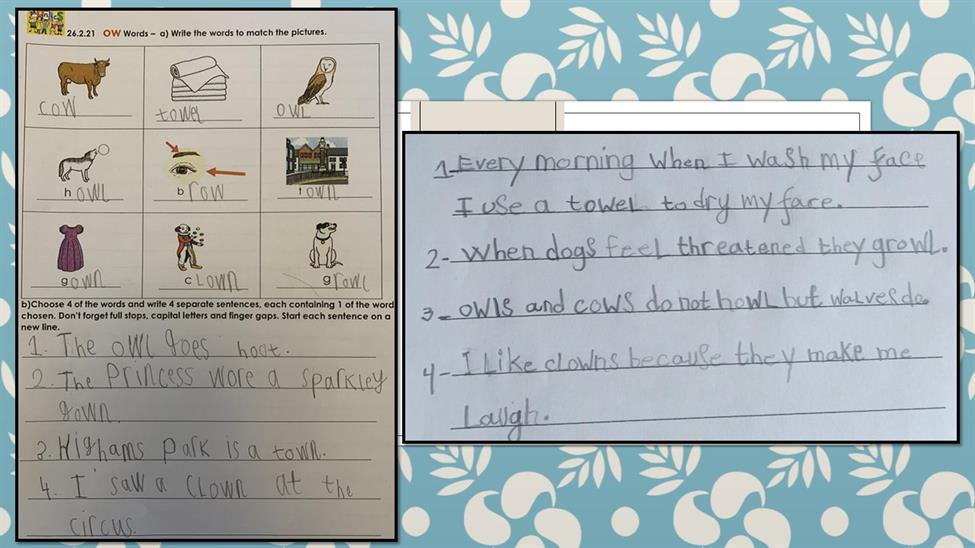 26.2.21 OW Words – a) Write the words to match the pictures.
cow towel owl
howl brow town
gown clown growl
b)Choose 4 of the words and write 4 separate sentences, each containing 1 of the word
chosen. Don't forget full stops, capital letters and finger gaps. Start each sentence on a
new line.
1. The owl goes hoot.
2. The Princess wore a sparkley
gown.
3. Highams Park is a town.
4. I saw a clown at the
circus.
1 Every morning when I wash my face
I use a towel to dry my face.
2- When dogs feel threatened they growl.
3- owls and cows do not howl but walves do.
4- I like clowns because they make me
Laugh.